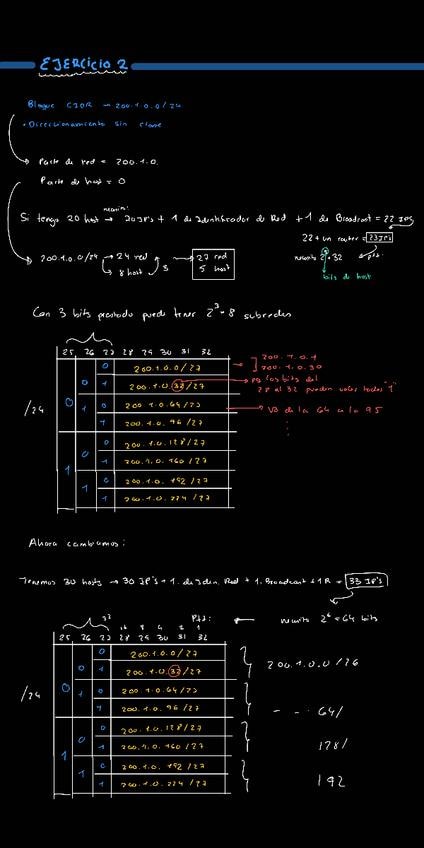 EJERCICIO 2
Bloque CIDR → 200.1.0.0/24
• Direccionamiento sin clase
Parte de red = 200.1.0.
Parte de host = 0
necesito:
Si tengo 20 host → 20 IP's + 1 de Identificador de Red + 1 de Broadcast = 22 IPs
22 + un router = 23 IP's
200.1.0.0/24 → 24 red
8 host
3
27 red
5 host
necesito 2⁵ = 32
bits de host
Con 3 bits prestado puedo tener 2³ = 8 subredes
25 26 27 28 29 30 31 32
/24
0 200.1.0.0/27
0 1 200.1.0.32/27
0 1 0 200.1.0.64/27
1 200.1.0.96/27
0 0 200.1.0.128/27
1 200.1.0.160/27
1 1 0 200.1.0.192/27
1 200.1.0.224/27
200.1.0.1
200.1.0.30
los bits del
28 al 32 pueden valer todos "1"
Va de la 64 a la 95
Ahora cambiamos:
Tenemos 30 hosts → 30 IP's + 1. de Iden. Red + 1. Broadcast + 1R = 33 IP's
necesito 2⁶ = 64 bits
32 16 8 4 2 1
25 26 27 28 29 30 31 32
/24
0 200.1.0.0/27
0 1 200.1.0.32/27
0 1 0 200.1.0.64/27
1 200.1.0.96/27
0 0 200.1.0.128/27
1 200.1.0.160/27
1 1 0 200.1.0.192/27
1 200.1.0.224/27
200.1.0.0/26
- - - 64/
128/
192